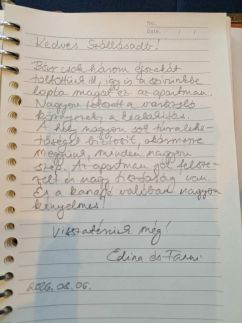 No.
Date. / /
Kedves Szállásadó!
Bár csak három éjszakát
töltöttünk itt, így is a szívünkbe
lopta magát ez az apartman.
Nagyon tetszett a varázsló
környezet, a kialakítás.
A hely nagyon sok túralehe-
tőséget biztosít, akármerre
mentünk, minden nagyon
szép. Az apartman jól felsze-
relt és nagy tisztaság van.
És a kanapé valóban nagyon
kényelmes!
Visszatérünk még!
Edina és Fanni
2026.08.06.